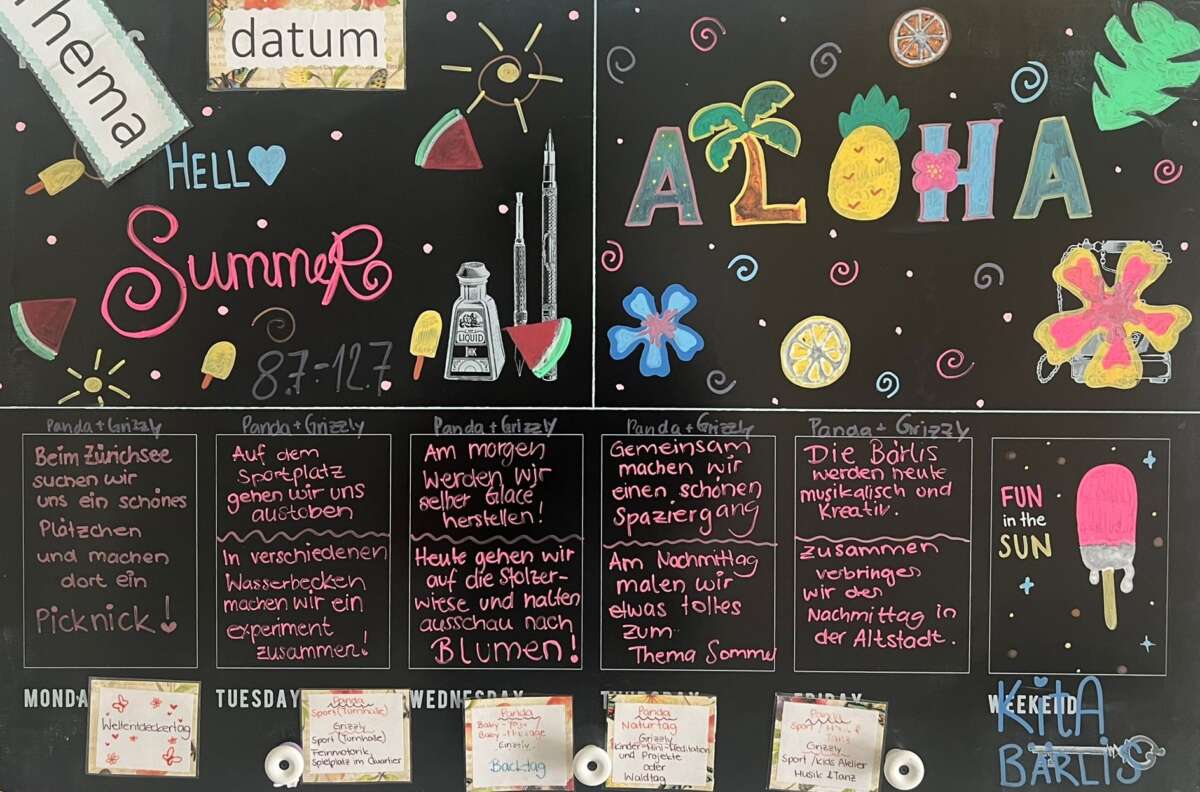 Thema
datum
HELLO
SummeR
8.7-12.7
LIQUID
INK
ALOHA
Panda + Grizzly
Beim Zürichsee
suchen wir
uns ein schönes
Plätzchen
und machen
dort ein
Picknick!
Panda + Grizzly
Auf dem
Sportplatz
gehen wir uns
austoben
In verschiedenen
Wasserbecken
machen wir ein
experiment
zusammen!
Panda + Grizzly
Am morgen
werden wir
selber Glace
herstellen!
Heute gehen wir
auf die Stolzer-
wiese und halten
ausschau nach
Blumen!
Panda + Grizzly
Gemeinsam
machen wir
einen schönen
Spaziergang
Am Nachmittag
malen wir
etwas tolles
zum
Thema Sommer
Panda + Grizzly
Die Bärlis
werden heute
musikalisch und
Kreativ.
zusammen
verbringen
wir den
Nachmittag in
der Altstadt.
FUN
in the
SUN
MONDA
TUESDAY
WEDNESDAY
THURSDAY
FRIDAY
WEEKEND
Weltentdeckertag
Panda
Sport (Turnhalle)
Grizzly
Sport (Turnhalle)
Feinmotorik,
Spielplatz im Quartier
Panda
Baby-Yoga
Baby-Massage
Grizzly
Backtag
Panda
Naturtag
Grizzly
Kinder-Mini-Meditation
und Projekte
oder
Waldtag
Panda
Sport /
Tanz
Grizzly
Sport /Kids Atelier
Musik & Tanz
KitA
BÄRLIS